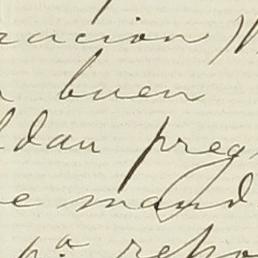 racion
buen
ldan preg
e mand
6ª repo